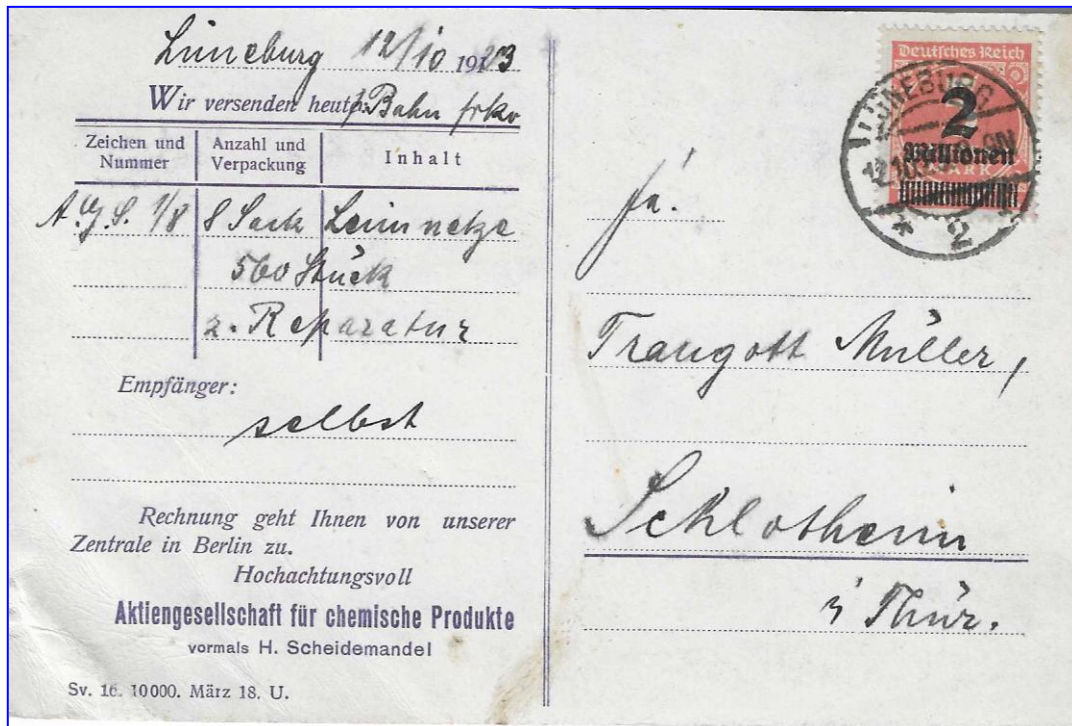 Lüneburg 12/10 1923
Wir versenden heute p. Bahn frko
Zeichen und Nummer
Anzahl und Verpackung
Inhalt
A.G.S. 1/8 8 Sack Leimnetze
560 Stück
z. Reparatur
Empfänger:
selbst
Rechnung geht Ihnen von unserer
Zentrale in Berlin zu.
Hochachtungsvoll
Aktiengesellschaft für chemische Produkte
vormals H. Scheidemandel
Sv. 16. 10000. März 18. U.
Deutsches Reich
2
Millionen
MARK
LÜNEBURG
* 2
Fa.
Traugott Müller,
Schlotheim
i/Thür.